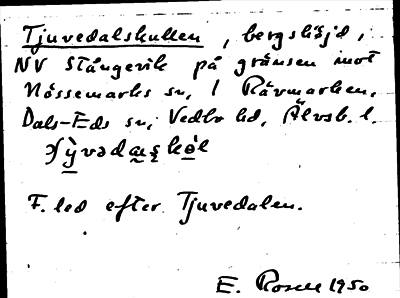 Tjuvedalskullen, bergshöjd,
NV Stångevik på gränsen mot
Nössemarks sn, i Rävmarken,
Dals-Eds sn, Vedbo hd, Älvsb. l.
F. led efter Tjuvedalen.
E. Rosell 1950